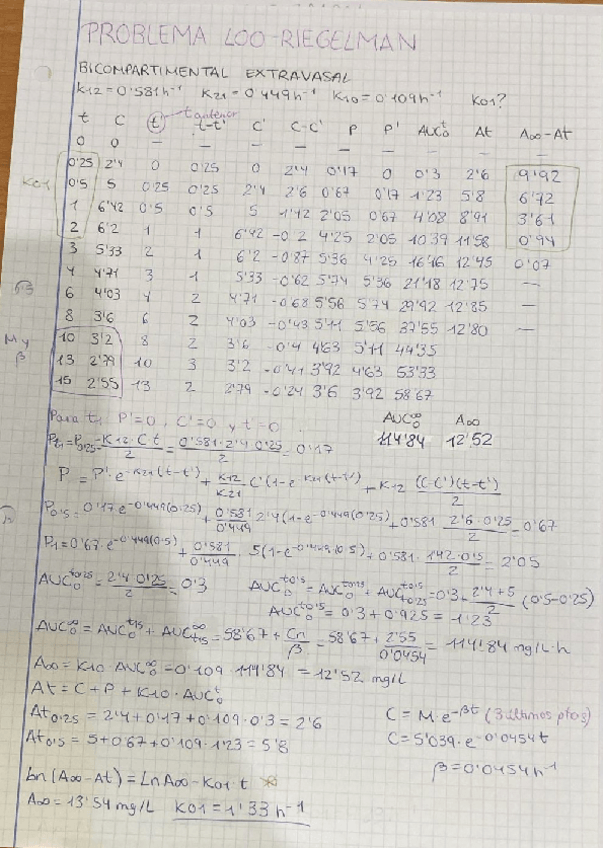 PROBLEMA LOO-RIEGELMAN
BICOMPARTIMENTAL EXTRAVASAL
K12=0'581h⁻¹ K21=0'449h⁻¹ K10=0'109h⁻¹ K01?
t anterior
t C t' t-t' C' C-C' P P' AUC₀ᵗ At A∞-At
0 0 — — — — — — — — —
0'25 2'4 0 0'25 0 2'4 0'17 0 0'3 2'6 9'92
K01 0'5 5 0'25 0'25 2'4 2'6 0'67 0'17 1'23 5'8 6'72
1 6'42 0'5 0'5 5 1'42 2'05 0'67 4'08 8'91 3'61
2 6'2 1 1 6'42 -0'2 4'25 2'05 10'39 11'58 0'94
3 5'33 2 1 6'2 -0'87 5'36 4'25 16'16 12'45 0'07
4 4'71 3 1 5'33 -0'62 5'74 5'36 21'18 12'75 —
β 6 4'03 4 2 4'71 -0'68 5'56 5'74 29'92 12'85 —
8 3'6 6 2 4'03 -0'43 5'11 5'56 37'55 12'80 —
M y β 10 3'2 8 2 3'6 -0'4 4'63 5'11 44'35
13 2'79 10 3 3'2 -0'41 3'92 4'63 53'33
15 2'55 13 2 2'79 -0'24 3'6 3'92 58'67
Para t₁ P'=0, C'=0 y t'=0
AUC₀^∞ A∞
114'84 12'52
Pt₁=P0'25=K12·C·t/2=0'581·2'4·0'25/2=0'17
P=P'·e^-K21(t-t')+K12/K21 C'(1-e^-K21(t-t'))+K12 (C-C')(t-t')/2
P0'5=0'17·e^-0'449(0'25)+0'581/0'449 2'4(1-e^-0'449(0'25))+0'581 2'6·0'25/2=0'67
P1=0'67·e^-0'449(0'5)+0'581/0'449·5(1-e^-0'449(0'5))+0'581·1'42·0'5/2=2'05
AUC₀^t0'25=2'4·0'25/2=0'3 AUC₀^t0'5=AUC₀^t0'25+AUC t0'25^t0'5=0'3+2'4+5/2 (0'5-0'25)
AUC₀^t0'5=0'3+0'925=1'23
AUC₀^∞=AUC₀^t15+AUC t15^∞=58'67+Cn/β=58'67+2'55/0'0454=114'84 mg/L·h
A∞=K10·AUC₀^∞=0'109·114'84=12'52 mg/L
At=C+P+K10·AUC₀ᵗ
At0'25=2'4+0'17+0'109·0'3=2'6
C=M·e^-βt (3 últimos ptos)
At0'5=5+0'67+0'109·1'23=5'8
C=5'039·e^-0'0454t
β=0'0454h⁻¹
Ln(A∞-At)=LnA∞-K01·t
A∞=13'54mg/L K01=1'33h⁻¹